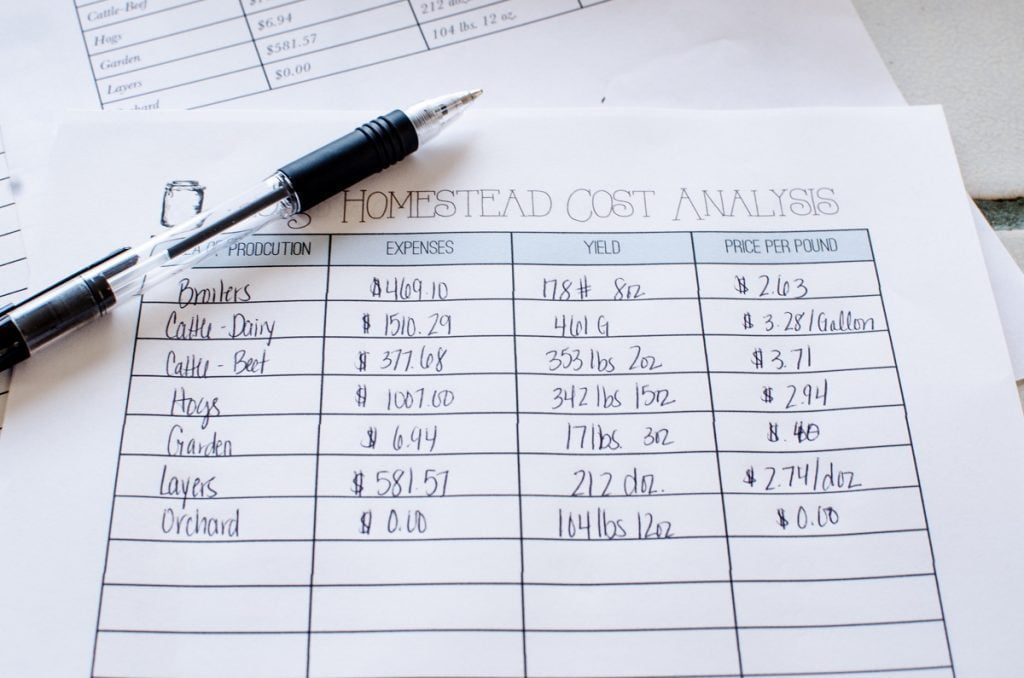 Cattle-Beef
Hogs $6.94 212 doz.
Garden $581.57 104 lbs. 12 oz.
Layers $0.00
HOMESTEAD COST ANALYSIS
PRODCUTION EXPENSES YIELD PRICE PER POUND
Broilers $469.10 178# 8oz $2.63
Cattle-Dairy $1510.29 461 G $3.28/Gallon
Cattle-Beef $377.68 353 lbs 2oz $3.71
Hogs $1007.00 342 lbs 15oz $2.94
Garden $6.94 17 lbs. 3oz $.40
Layers $581.57 212 doz. $2.74/doz
Orchard $0.00 104 lbs 12oz $0.00